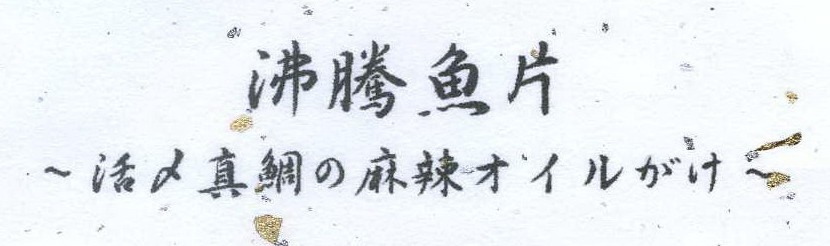 沸騰魚片
～活〆真鯛の麻辣オイルがけ～